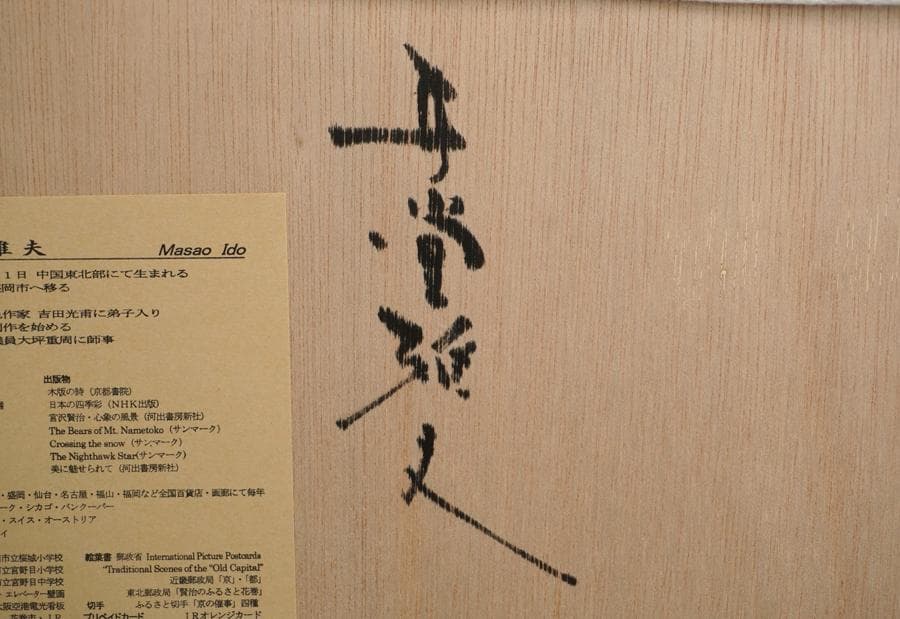 井堂雅夫
雅夫 Masao Ido
1日 中国東北部にて生まれる
盛岡市へ移る
作家 吉田光甫に弟子入り
制作を始める
員大坪重周に師事
出版物
木版の詩（京都書院）
日本の四季彩（NHK出版）
宮沢賢治・心象の風景（河出書房新社）
The Bears of Mt. Nametoko（サンマーク）
Crossing the snow（サンマーク）
The Nighthawk Star(サンマーク)
美に魅せられて（河出書房新社）
・盛岡・仙台・名古屋・福山・福岡など全国百貨店・画廊にて毎年
ーク・シカゴ・バンクーバー
・スイス・オーストリア
イ
市立桜城小学校
市立宮野目小学校
市立宮野目中学校
・エレベーター壁画
大阪空港電光看板
花巻市・JR
絵葉書 郵政省 International Picture Postcards
"Traditional Scenes of the "Old Capital"
近畿郵政局「京」・「都」
東北郵政局「賢治のふるさと花巻」
切手 ふるさと切手「京の催事」四種
プリペイドカード JRオレンジカード